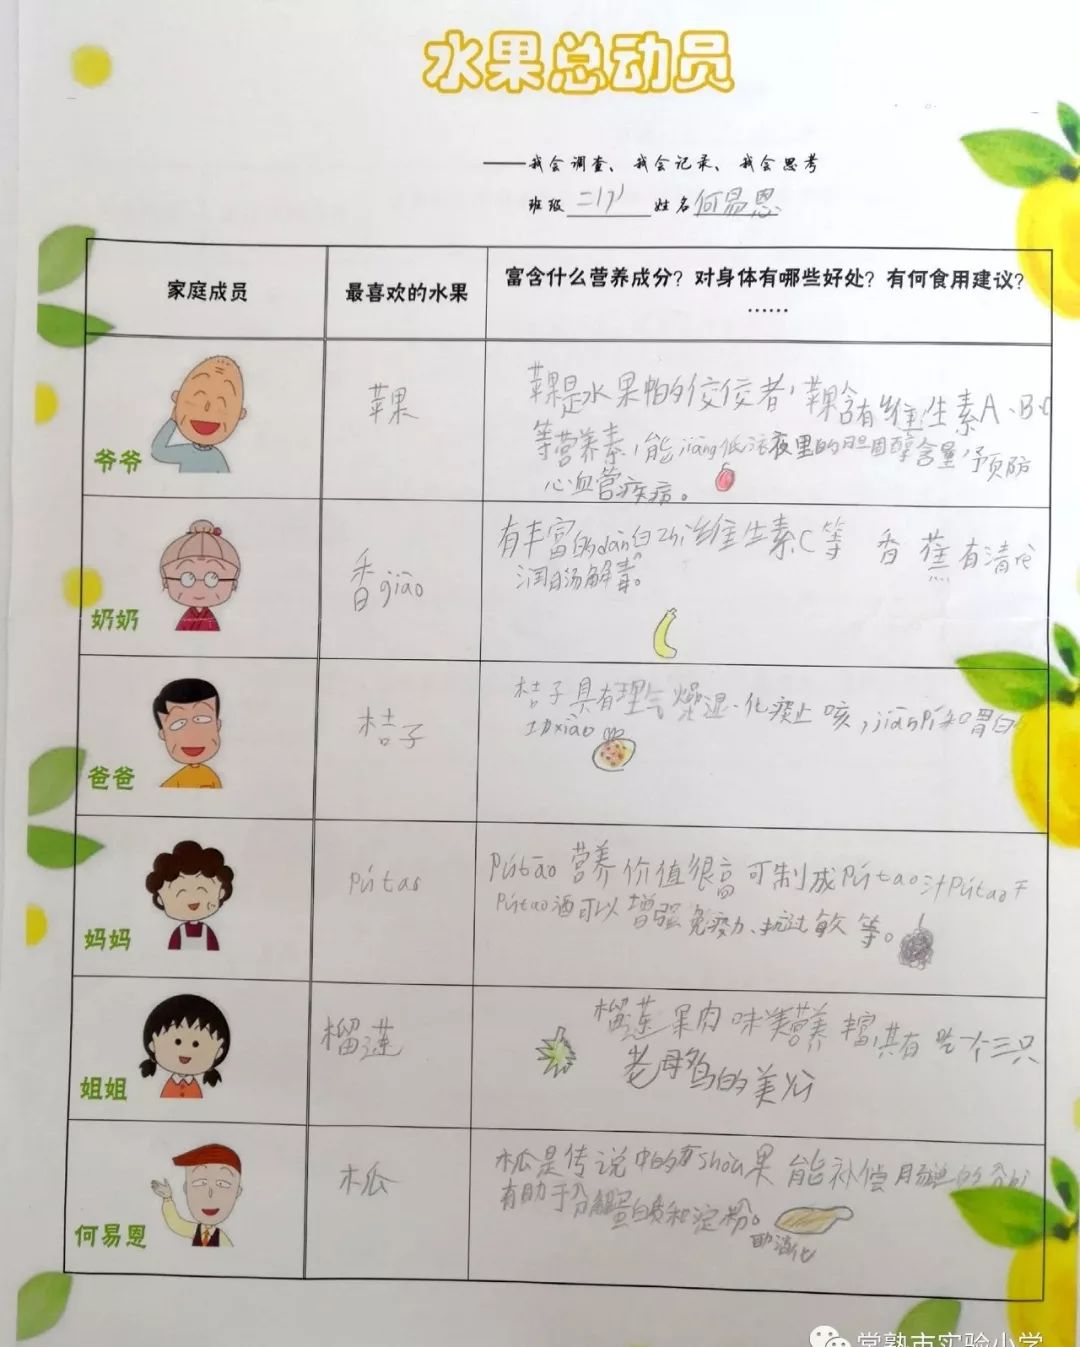 水果总动员
——我会调查、我会记录、我会思考
班级 二 姓名 何易恩
家庭成员 最喜欢的水果 富含什么营养成分？对身体有哪些好处？有何食用建议？
……
爷爷 苹果
苹果是水果中的佼佼者，苹果含有维生素A、B、C
等营养素，能jiàng低液里的胆固醇含量，预防
心血管疾病。
奶奶 香jiāo
有丰富的dàn白zhì维生素C等 香蕉有清
润肠解毒。
爸爸 桔子
桔子具有理气燥湿、化痰止咳，jiàn pí和胃
功xiào
妈妈 pútao
pútáo营养价值很高可制成pútao汁pútao干
pútao酒可以增强免疫力、抗过敏等。
姐姐 榴莲
榴莲果肉味美营养丰富，具有吃一个三只
老母鸡的美
何易恩 木瓜
木瓜是传说中的shòu果 能补偿的分
有助于分解蛋白质和淀粉。
助消化
常熟市实验小学